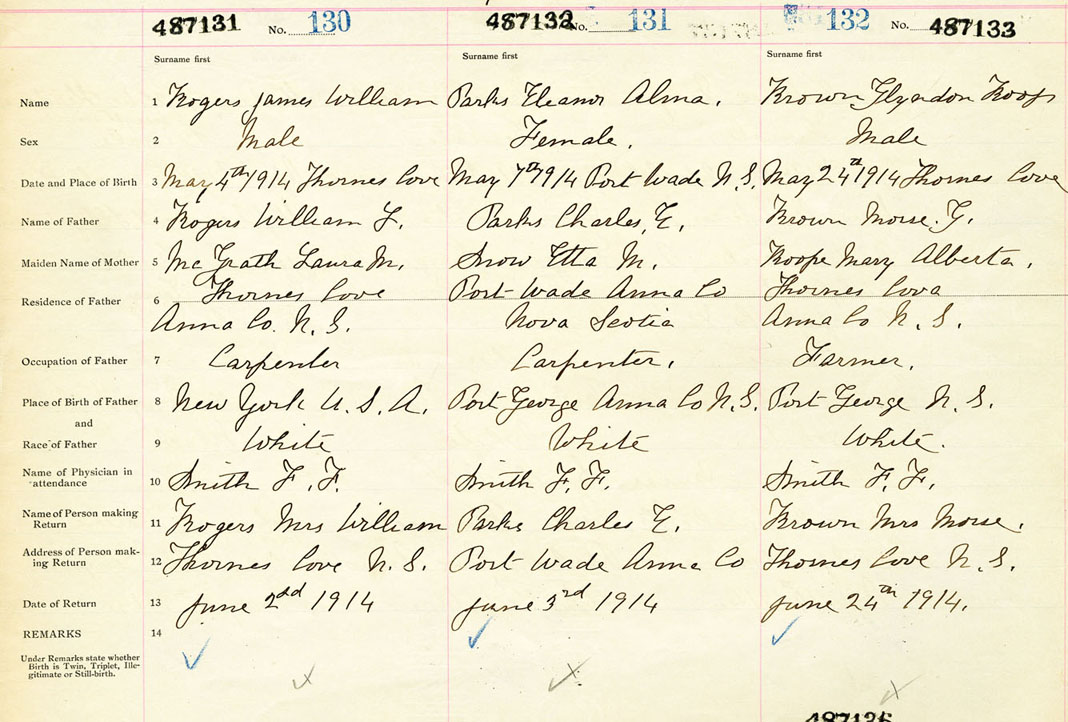 487131 No. 130 487132 No. 131 132 No. 487133
Surname first Surname first Surname first
Name 1 Rogers James William Parks Eleanor Alma. Brown Glyndon Koop
Sex 2 Male Female. Male
Date and Place of Birth 3 May 4th 1914 Thornes Cove May 7th 1914 Port Wade N.S. May 24th 1914 Thornes Cove
Name of Father 4 Rogers William L. Parks Charles E. Brown Morse. G.
Maiden Name of Mother 5 McGrath Laura M. Snow Etta M. Koope Mary Alberta.
Residence of Father 6 Thornes Cove Port Wade Anna Co Thornes Cova
Anna Co. N.S. Nova Scotia Anna Co N.S.
Occupation of Father 7 Carpenter Carpenter. Farmer.
Place of Birth of Father 8 New York U.S.A. Port George Anna Co N.S. Port George N.S.
and
Race of Father 9 White White White.
Name of Physician in attendance 10 Smith F.F. Smith F.F. Smith F.F.
Name of Person making Return 11 Rogers Mrs William Parks Charles E. Brown Mrs Morse.
Address of Person making Return 12 Thornes Cove N.S. Port Wade Anna Co Thornes Cove N.S.
Date of Return 13 June 2nd 1914 June 3rd 1914 June 24th 1914.
REMARKS 14
Under Remarks state whether
Birth is Twin, Triplet, Ille-
gitimate or Still-birth.